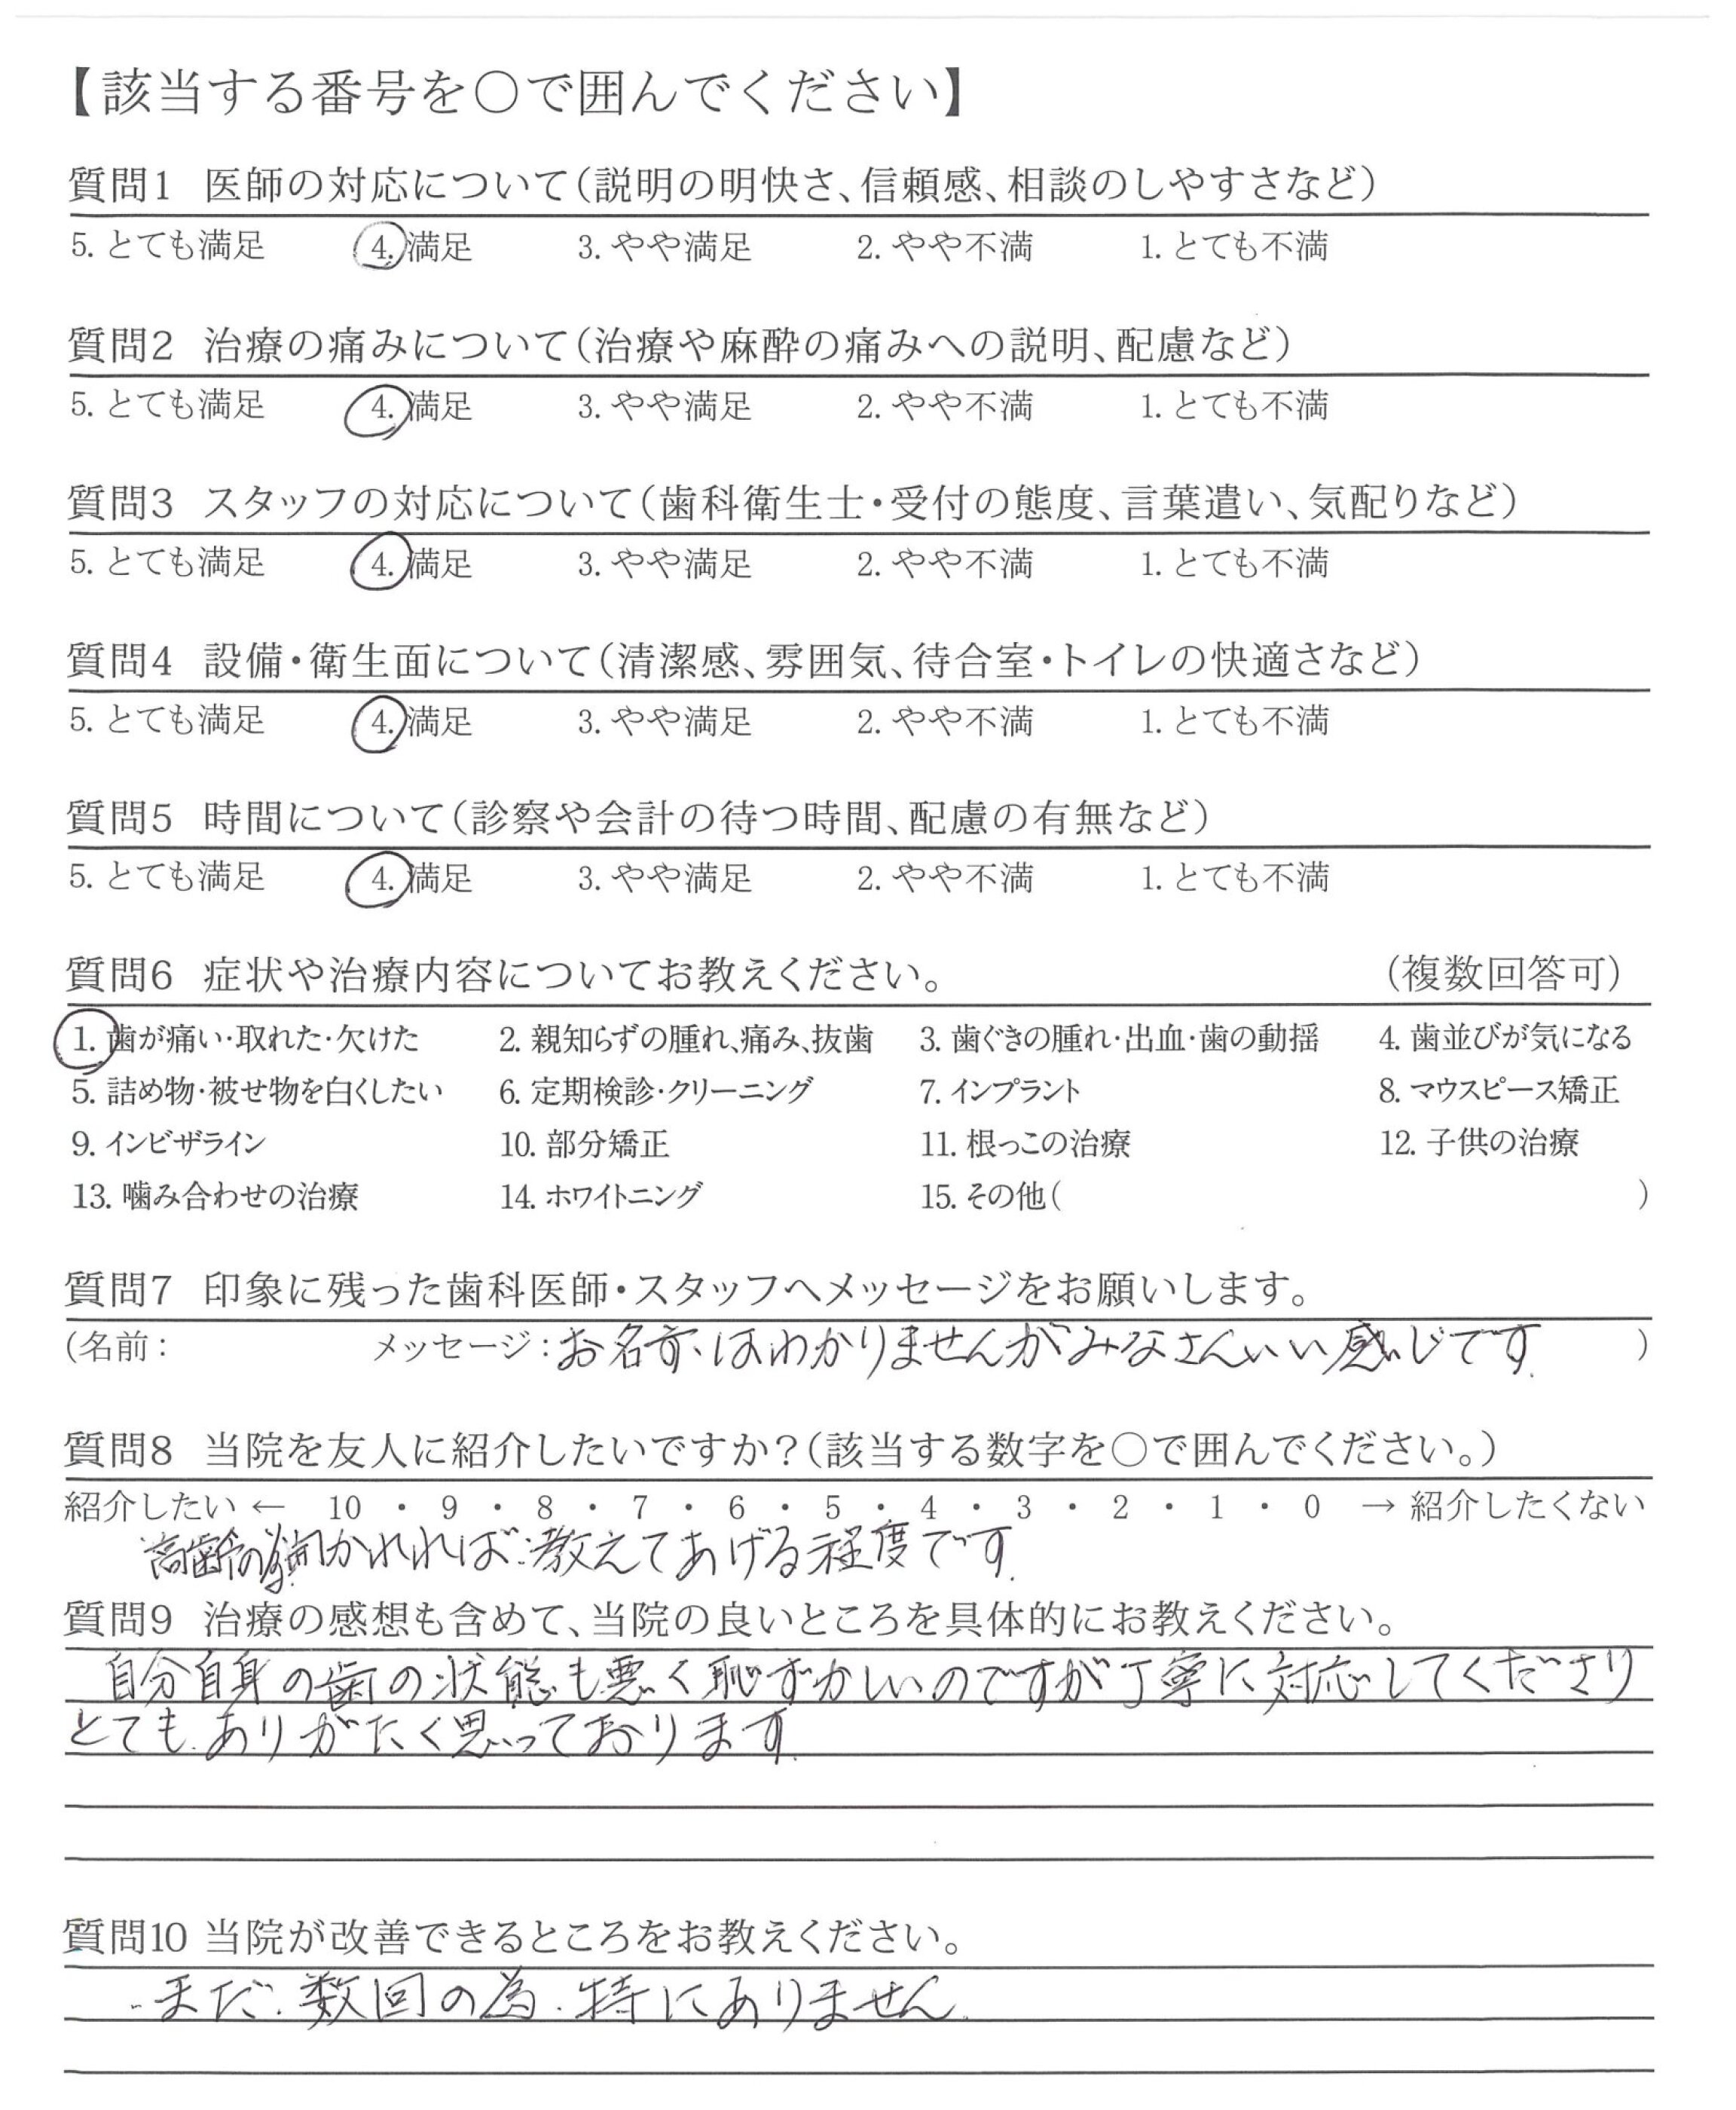 【該当する番号を○で囲んでください】
質問1 医師の対応について（説明の明快さ、信頼感、相談のしやすさなど）
5. とても満足 4. 満足 3. やや満足 2. やや不満 1. とても不満
質問2 治療の痛みについて（治療や麻酔の痛みへの説明、配慮など）
5. とても満足 4. 満足 3. やや満足 2. やや不満 1. とても不満
質問3 スタッフの対応について（歯科衛生士・受付の態度、言葉遣い、気配りなど）
5. とても満足 4. 満足 3. やや満足 2. やや不満 1. とても不満
質問4 設備・衛生面について（清潔感、雰囲気、待合室・トイレの快適さなど）
5. とても満足 4. 満足 3. やや満足 2. やや不満 1. とても不満
質問5 時間について（診察や会計の待つ時間、配慮の有無など）
5. とても満足 4. 満足 3. やや満足 2. やや不満 1. とても不満
質問6 症状や治療内容についてお教えください。 （複数回答可）
1. 歯が痛い・取れた・欠けた 2. 親知らずの腫れ、痛み、抜歯 3. 歯ぐきの腫れ・出血・歯の動揺 4. 歯並びが気になる
5. 詰め物・被せ物を白くしたい 6. 定期検診・クリーニング 7. インプラント 8. マウスピース矯正
9. インビザライン 10. 部分矯正 11. 根っこの治療 12. 子供の治療
13. 噛み合わせの治療 14. ホワイトニング 15. その他（ ）
質問7 印象に残った歯科医師・スタッフへメッセージをお願いします。
（名前： メッセージ：お名前はわかりませんがみなさんいい感じです ）
質問8 当院を友人に紹介したいですか？（該当する数字を○で囲んでください。）
紹介したい ← 10 ・ 9 ・ 8 ・ 7 ・ 6 ・ 5 ・ 4 ・ 3 ・ 2 ・ 1 ・ 0 → 紹介したくない
高齢の為 聞かれれば教えてあげる程度です.
質問9 治療の感想も含めて、当院の良いところを具体的にお教えください。
自分自身の歯の状態も悪く恥ずかしいのですが丁寧に対応してくださり
とてもありがたく思っております.
質問10 当院が改善できるところをお教えください。
まだ数回の為特にありません.